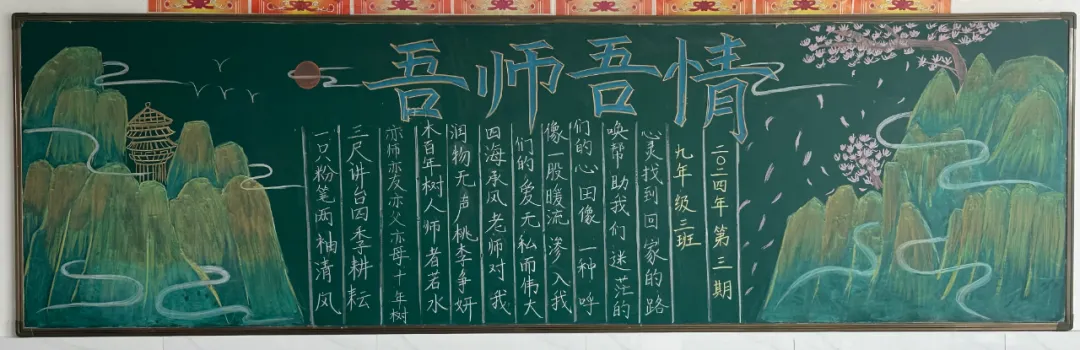 吾师吾情
一只粉笔两袖清风
三尺讲台四季耕耘
亦师亦友亦父亦母十年树
木百年树人师者若水
润物无声桃李争妍
四海承风老师对我
们的爱无私而伟大
像一股暖流渗入我
们的心田像一种呼
唤帮助我们迷茫的
心灵找到回家的路
九年级三班
二〇二四年第三期